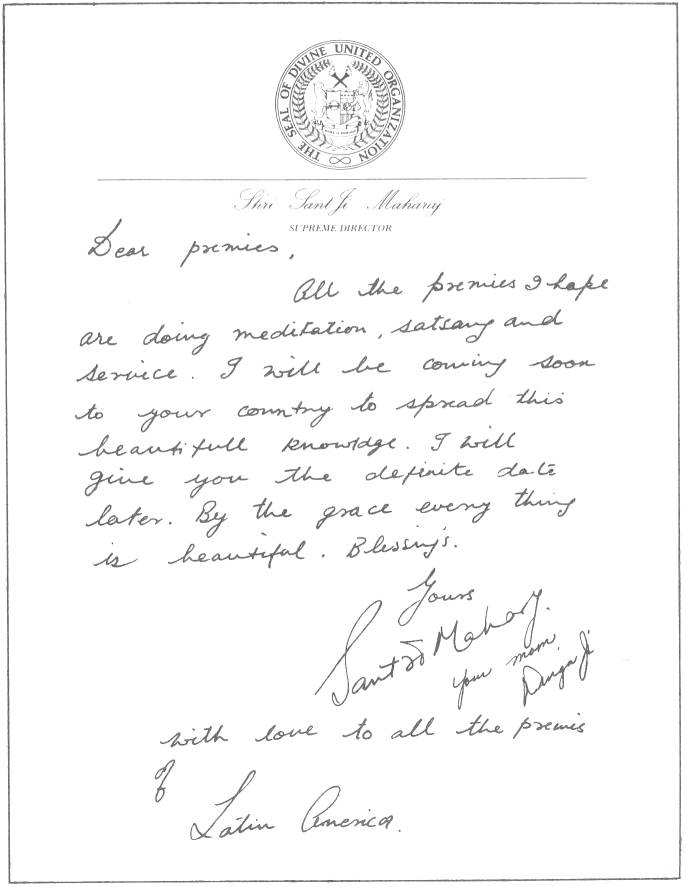 THE SEAL OF DIVINE UNITED ORGANIZATION
Shri Sant Ji Maharaj
SUPREME DIRECTOR
Dear premies,
All the premies I hope
are doing meditation, satsang and
service. I will be coming soon
to your country to spread this
beautifull knowldge. I will
give you the definite date
later. By the grace every thing
is beautiful. Blessing's.
Yours
Sant Ji Maharaj.
your mom,
Durga Ji
with love to all the premies
of
Latin America.